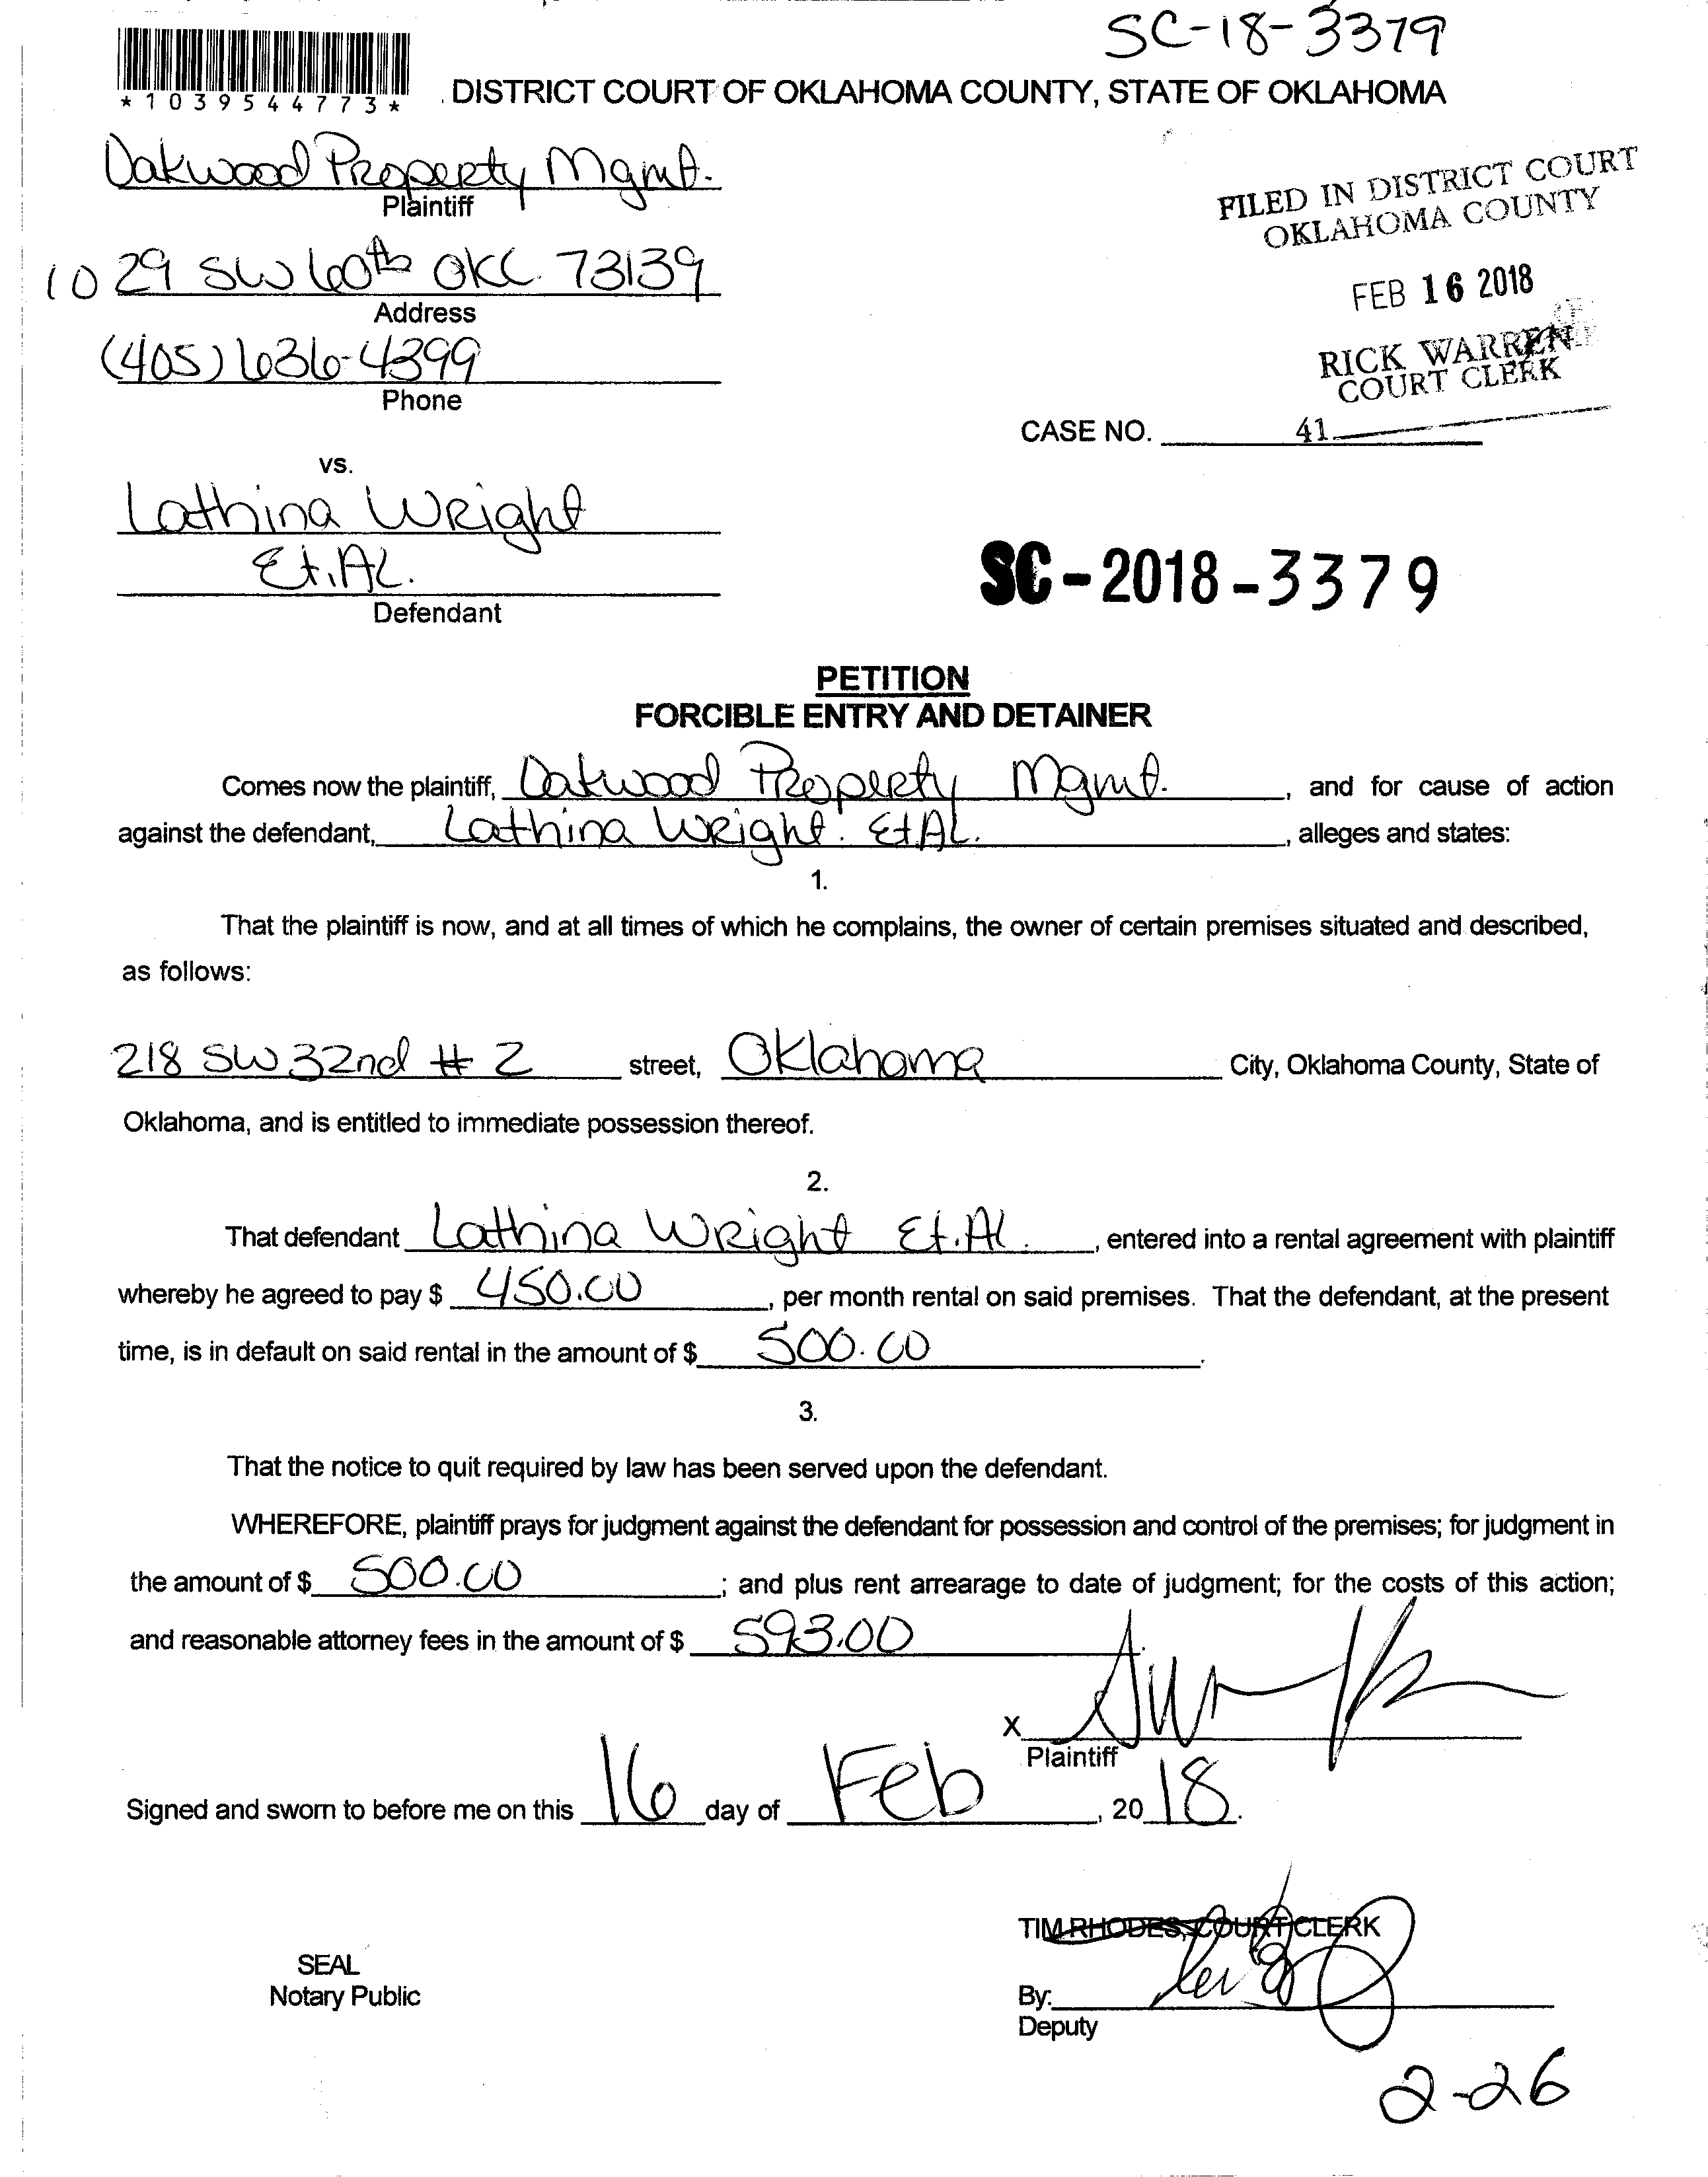 SC-18-3379
*1039544773*
DISTRICT COURT OF OKLAHOMA COUNTY, STATE OF OKLAHOMA
Oakwood Property Mgmt.
Plaintiff
FILED IN DISTRICT COURT
OKLAHOMA COUNTY
1029 SW 60th OKC. 73139
Address
FEB 16 2018
(405) 636-4399
Phone
RICK WARREN
COURT CLERK
CASE NO. 41
vs.
Lathina Wright
Et.Al.
Defendant
SC-2018-3379
PETITION
FORCIBLE ENTRY AND DETAINER
Comes now the plaintiff, Oakwood Property Mgmt. , and for cause of action
against the defendant, Lathina Wright. Et.AL. , alleges and states:
1.
That the plaintiff is now, and at all times of which he complains, the owner of certain premises situated and described,
as follows:
218 SW 32nd # 2 street, Oklahoma City, Oklahoma County, State of
Oklahoma, and is entitled to immediate possession thereof.
2.
That defendant Lathina Wright Et.Al. , entered into a rental agreement with plaintiff
whereby he agreed to pay $ 450.00 , per month rental on said premises. That the defendant, at the present
time, is in default on said rental in the amount of $ 500.00 .
3.
That the notice to quit required by law has been served upon the defendant.
WHEREFORE, plaintiff prays for judgment against the defendant for possession and control of the premises; for judgment in
the amount of $ 500.00 ; and plus rent arrearage to date of judgment; for the costs of this action;
and reasonable attorney fees in the amount of $ 593.00 .
X
Plaintiff
Signed and sworn to before me on this 16 day of Feb , 20 18.
TIM RHODES, COURT CLERK
SEAL
Notary Public
By:
Deputy
2-26